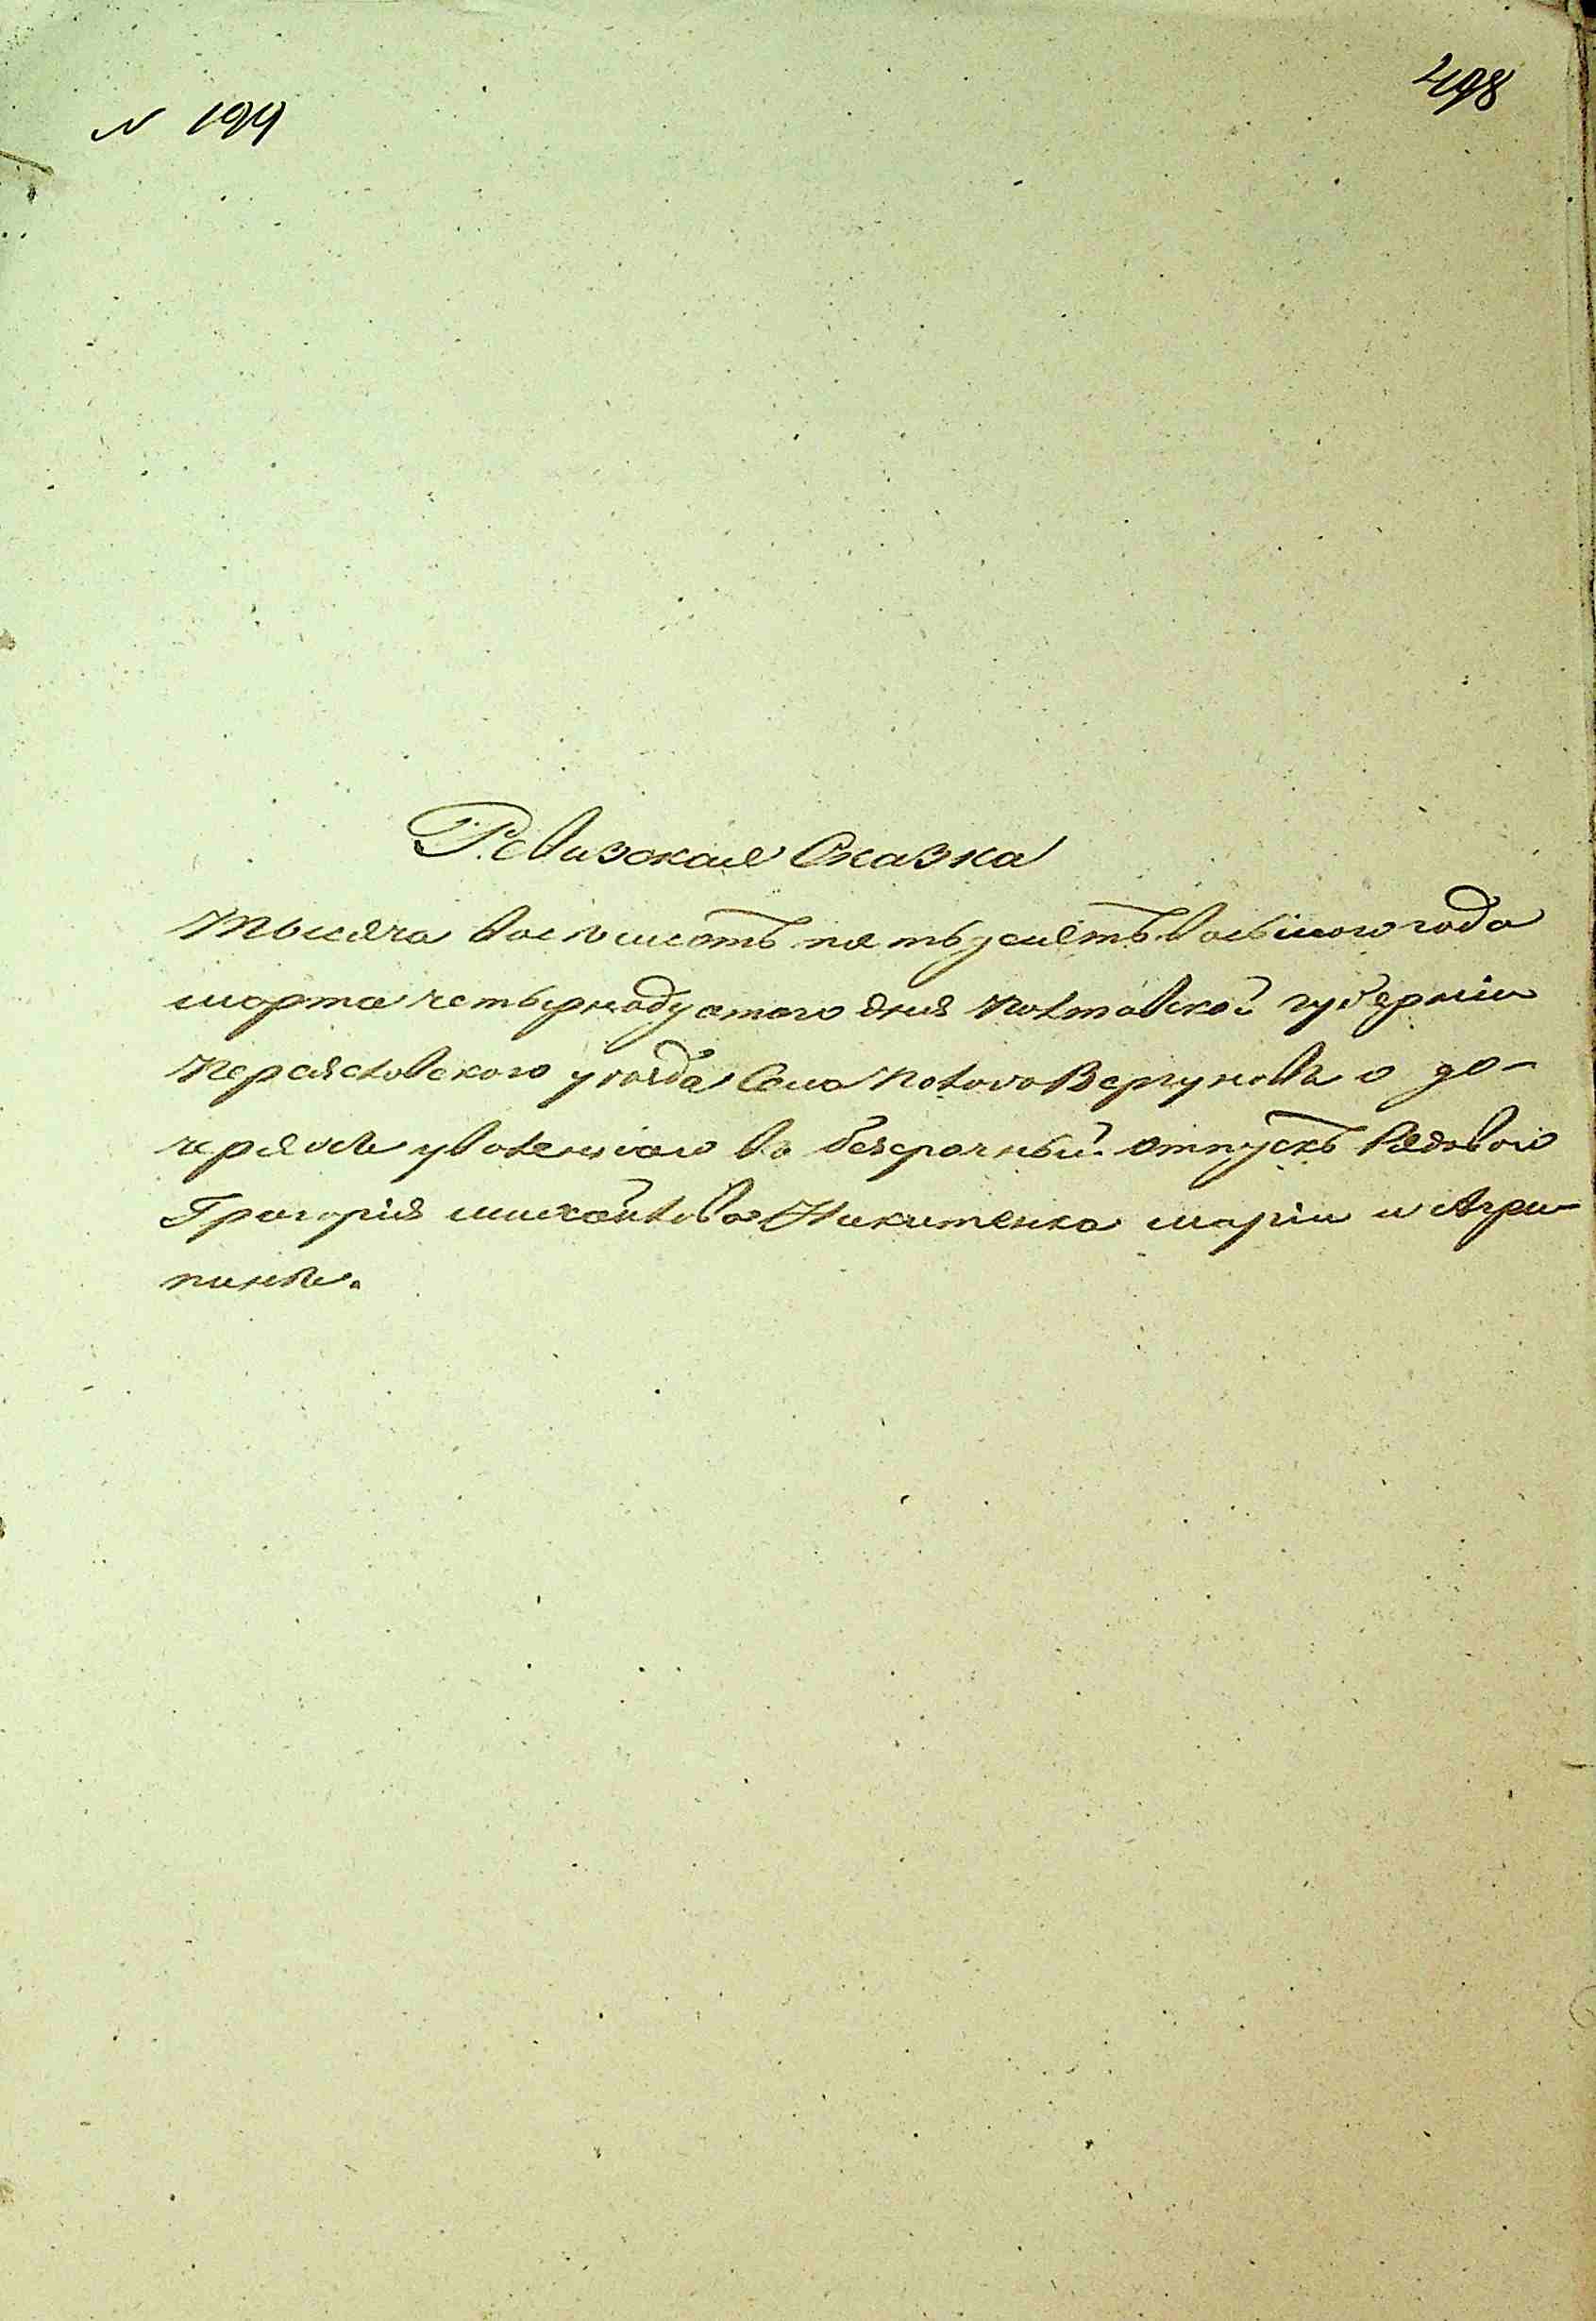 N 199
498
Ревизская Сказка
Тысяча восъмисотъ пятьдесятъ восьмого года
марта четырнадцатого дня Полтавской губерніи
Переяславского уезда Села Полого Вергуновъ о до-
черяхъ уволеннаго во безсрочный отпускъ Рядового
Григорія михайлова Никитенка маріи и Агри-
пинѣ.